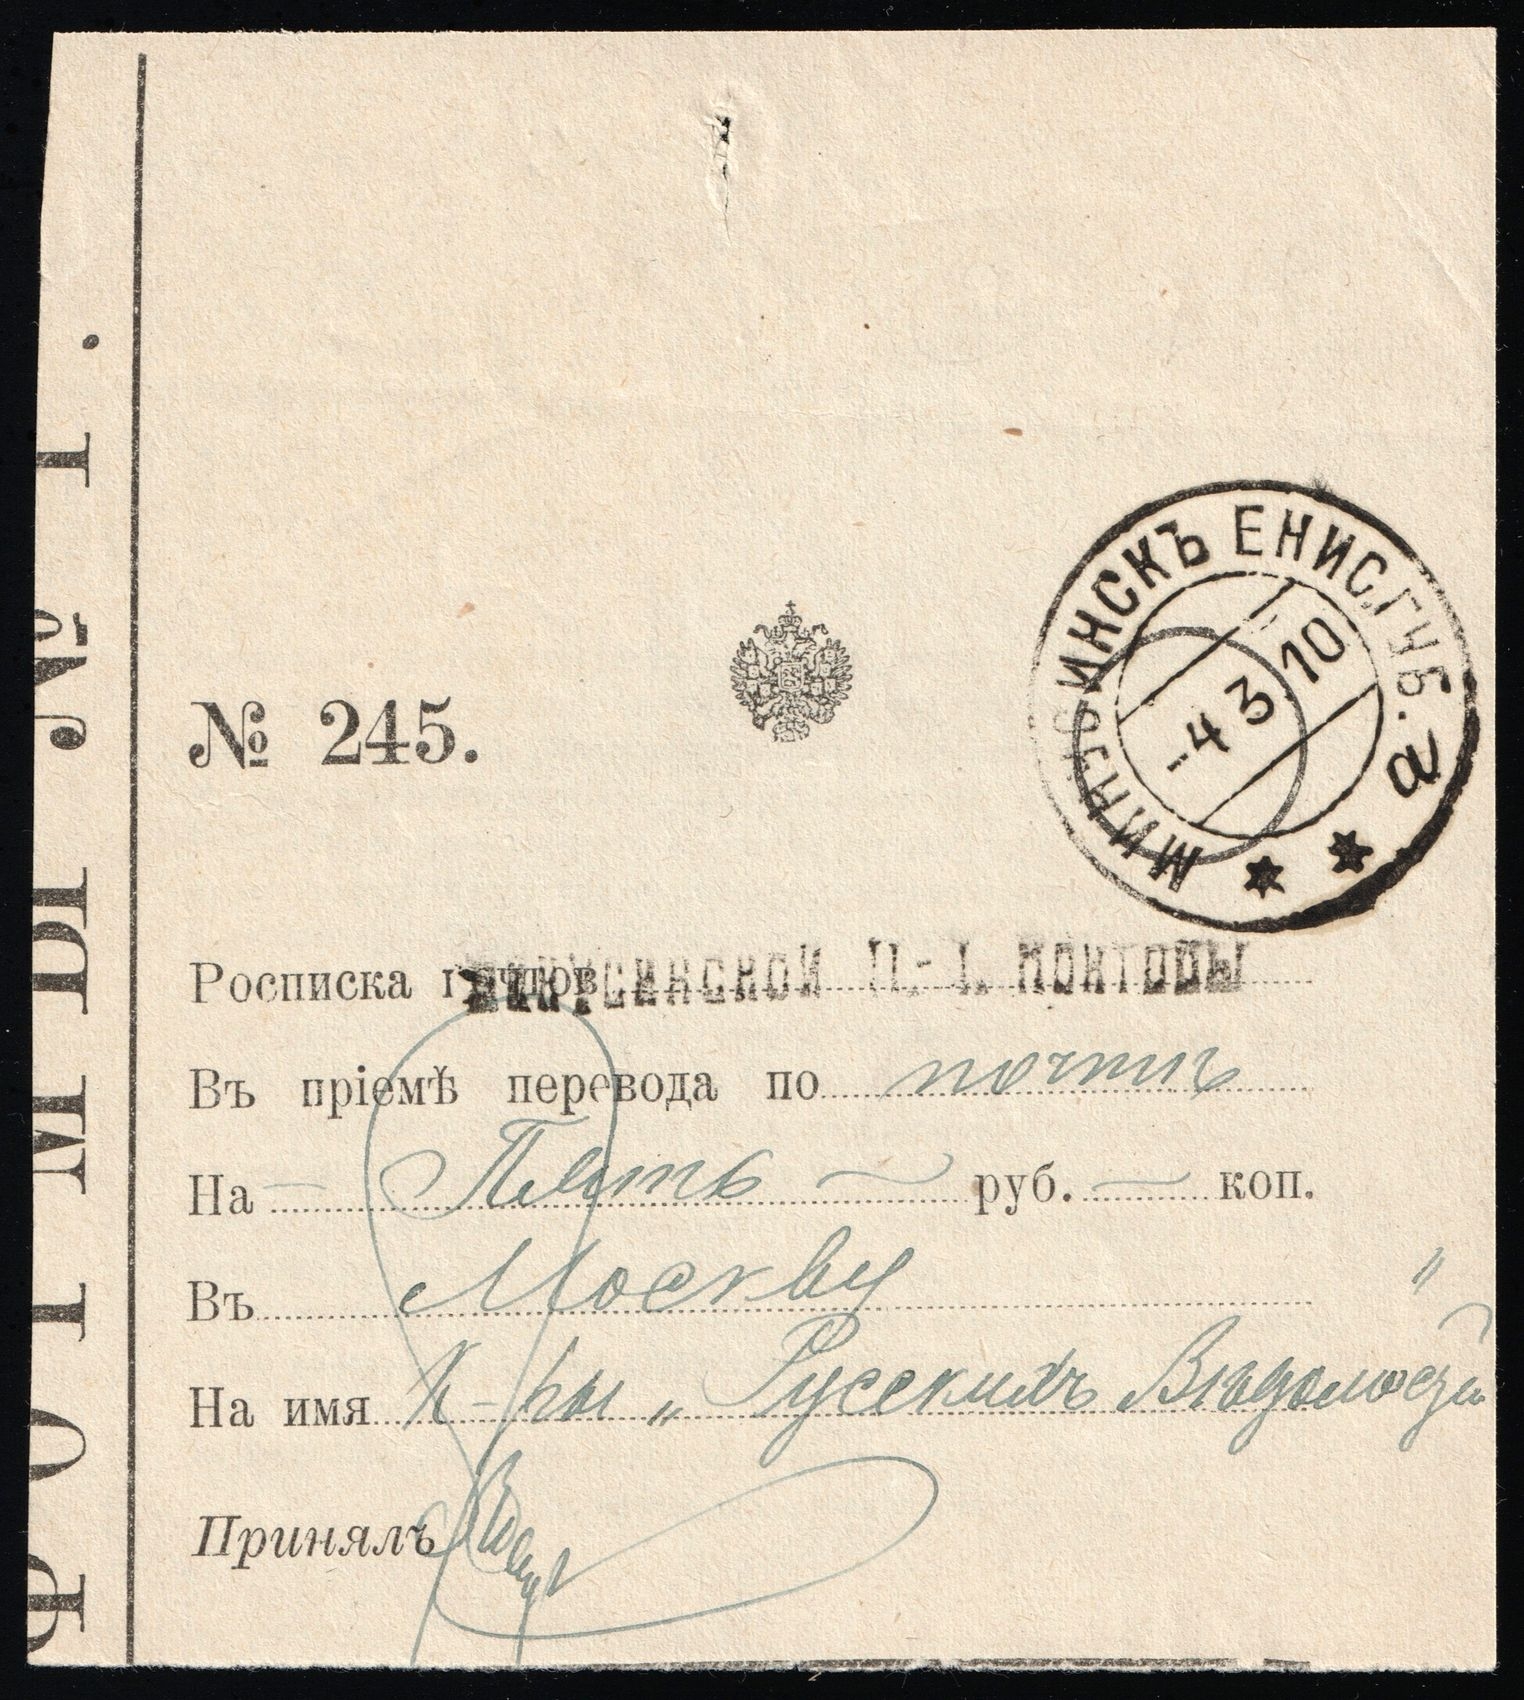 ФОРМЫ № 1.
МИНУСИНСКЪ ЕНИС.ГУБ.
-4 3.10
а
№ 245.
Росписка почтов Минусинской П.-Т. Конторы
Въ пріемѣ перевода по почтѣ
На Пять руб. коп.
Въ Москву
На имя К-ры „Русскихъ Вѣдомостей"
Принялъ